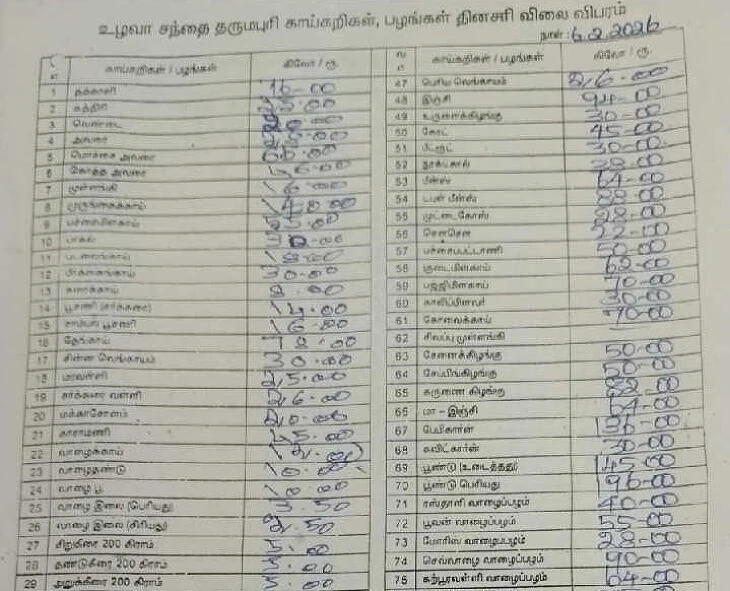 உழவர் சந்தை தருமபுரி காய்கறிகள், பழங்கள் தினசரி விலை விபரம்
நாள் : 6.2.2026
காய்கறிகள் / பழங்கள் கிலோ / ரூ.
1 தக்காளி 16-00
2 கத்தரி 25.00
3 வெண்டை
4 அவரை
5 மொச்சை அவரை
6 கொத்த அவரை
7 முள்ளங்கி 16.00
8 முருங்கைக்காய் 140.00
9 பச்சைமிளகாய் 55.00
10 பாகல் 32-00
11 புடலங்காய் 18.00
12 பீர்க்கங்காய் 30.00
13 சுரைக்காய் 8.00
14 பூசணி (சர்க்கரை) 14.00
15 சாம்பல் பூசணி 16.00
16 தேங்காய் 72.00
17 சின்ன வெங்காயம் 30.00
18 மரவள்ளி 25.00
19 சர்க்கரை வள்ளி 26.00
20 மக்காசோளம் 20.00
21 காராமணி 45.00
22 வாழைக்காய்
23 வாழைதண்டு 10.00
24 வாழை பூ 10.00
25 வாழை இலை (பெரியது) 3.50
26 வாழை இலை (சிறியது) 2.50
27 சிறுகீரை 200 கிராம் 5.00
28 தண்டுகீரை 200 கிராம் 5.00
29 அறுக்கீரை 200 கிராம் 5.00
காய்கறிகள் / பழங்கள் கிலோ / ரூ.
47 பெரிய வெங்காயம் 26.00
48 இஞ்சி 94-00
49 உருளைக்கிழங்கு 30-00
50 கேரட் 45-00
51 பீட்ரூட் 30-00
52 நூக்கோல் 28-00
53 பீன்ஸ் 64-00
54 டபுள் பீன்ஸ் 88-00
55 முட்டைகோஸ் 28-00
56 சௌசௌ 22-00
57 பச்சைபட்டாணி 50-00
58 குடைமிளகாய் 62-00
59 பஜ்ஜிமிளகாய் 70-00
60 காலிப்பிளவர் 30-00
61 கோவைக்காய் 70-00
62 சிவப்பு முள்ளங்கி
63 சேனைக்கிழங்கு 50-00
64 சேப்பங்கிழங்கு 50-00
65 கருணை கிழங்கு 82-00
66 மா - இஞ்சி 64-00
67 பேபிகார்ன் 136-00
68 சுவிட்கார்ன் 30-00
69 பூண்டு (உடைத்தது) 145-00
70 பூண்டு பெரியது 196-00
71 ரஸ்தாளி வாழைப்பழம் 40-00
72 பூவன் வாழைப்பழம் 55-00
73 மோரிஸ் வாழைப்பழம் 28-00
74 செவ்வாழை வாழைப்பழம் 90-00
75 கற்பூரவள்ளி வாழைப்பழம் 64-00